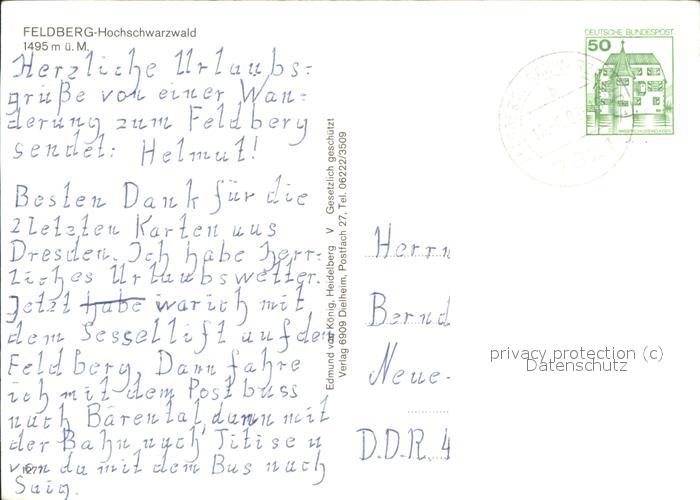 FELDBERG-Hochschwarzwald
1495 m ü. M.
Herzliche Urlaubs=
grüße von einer Wan=
derung zum Feldberg
sendet: Helmut!
Besten Dank für die
2 letzten Karten aus
Dresden. Ich habe herr=
liches Urlaubswetter.
Jetzt habe war ich mit
dem Sessellift auf den
Feldberg. Dann fahre
ich mit dem Postbuss
nach Bärental, dann mit
der Bahn nach Titisee u
von da mit dem Bus nach
Saig.
1277
Edmund von König, Heidelberg V Gesetzlich geschützt
Verlag 6909 Dielheim, Postfach 27, Tel. 06222/3509
DEUTSCHE BUNDESPOST
50
WASSERSCHLOSS INZLINGEN
Herrn
Bernd
Neue-
D.D.R. 4
privacy protection (c)
Datenschutz